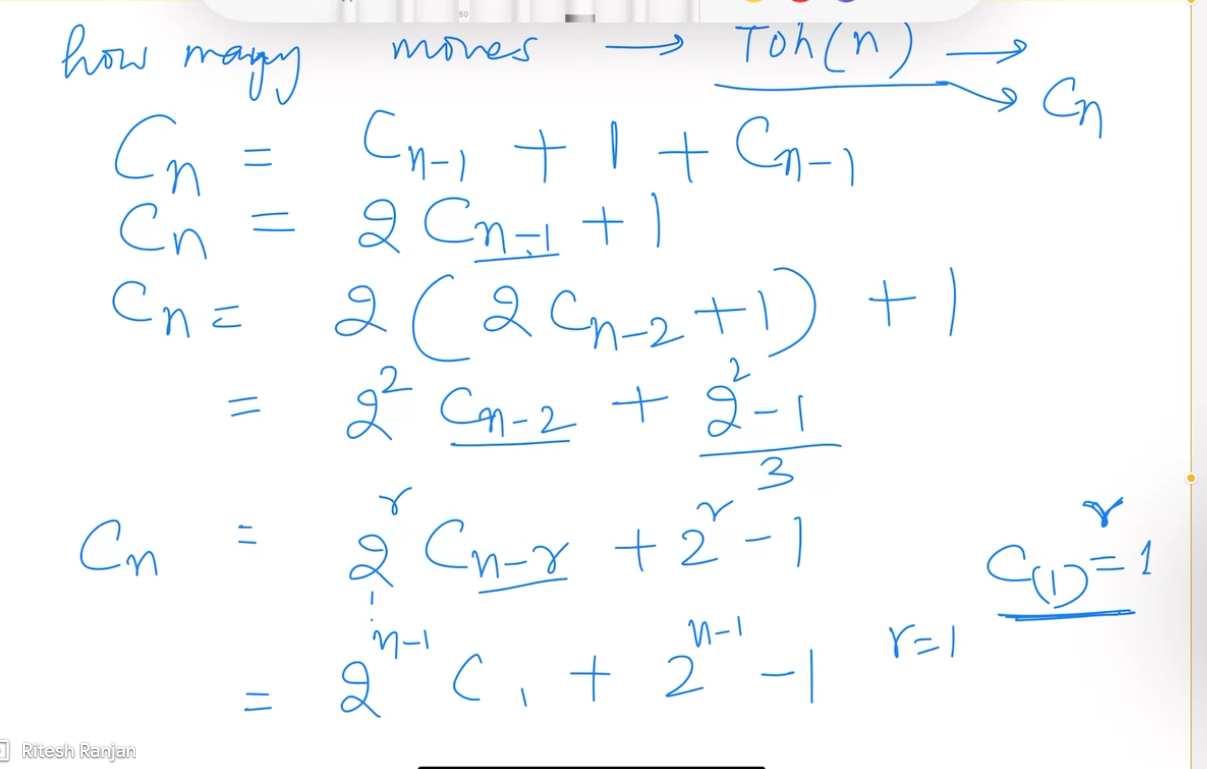 50
how many moves → Toh(n) →
→ Cn
Cn = Cn-1 + 1 + Cn-1
Cn = 2 Cn-1 + 1
Cn = 2 ( 2 Cn-2 + 1 ) + 1
= 2² Cn-2 + 2² - 1
3
Cn = 2^r Cn-r + 2^r - 1
r
C(1) = 1
r = 1
= 2^n-1 C1 + 2^n-1 - 1
Ritesh Ranjan